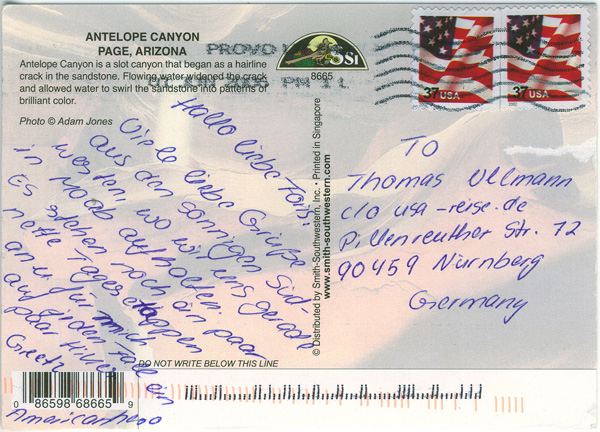 ANTELOPE CANYON
PAGE, ARIZONA
Antelope Canyon is a slot canyon that began as a hairline
crack in the sandstone. Flowing water widened the crack
and allowed water to swirl the sandstone into patterns of
brilliant color.
Photo © Adam Jones
PROVO
PM
8665
37 USA
37 USA
Hallo liebe Fotis!
Viele liebe Grüße
aus dem sonnigen Süd-
westen, wo wir uns gerade
in Moab aufhalten.
Es stehen noch ein paar
nette Tagesetappen
an u. für mich
auf jeden Fall ein
paar Hikes
Greetz
Americanhero
© Distributed by Smith-Southwestern, Inc. • Printed in Singapore
www.smith-southwestern.com
TO
Thomas Ullmann
c/o usa-reise.de
Pillenreuther Str. 72
90459 Nürnberg
Germany
DO NOT WRITE BELOW THIS LINE
0 86598 68665 9